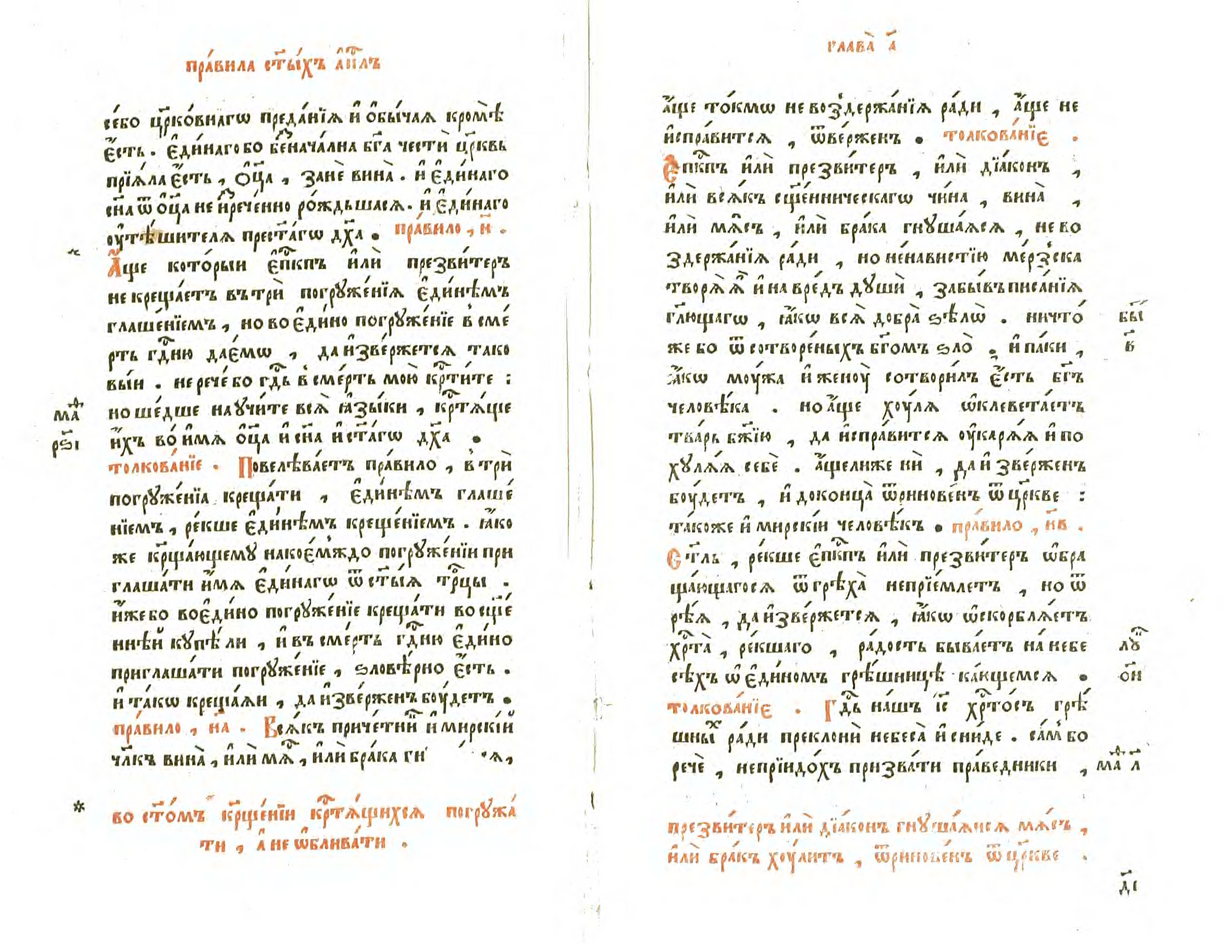 пра́вила ст҃ы́хъ а҆п҃лъ
се́бо цр҃ко́внагѡ преда́нїѧ и҆ ѻ҆бы́чаѧ кромѣ̀
є҆́сть . є҆ди́наго бо беꙁнача́лна бг҃а че́сти цр҃квь
прїѧ́ла є҆́сть , ѻ҆ц҃а̀ , занѐ вина̀ . и҆ є҆ди́наго
сн҃а ѿ ѻ҆ц҃а̀ не и҆ꙁрече́нно ро́ждьшасѧ . и҆ є҆ди́наго
ѹ҆тѣ́шителѧ прест҃а́гѡ дх҃а . пра́вило , н҃ .
А҆́ще кото́рыи є҆п҃кпъ и҆лѝ преꙁви́теръ
не креща́етъ въ трѝ погрꙋже́нїѧ є҆ди́нѣмъ
глаше́нїемъ , но во є҆ди́но погрꙋже́нїе в сме́
рть гд҃ню дае́мѡ , да и҆ꙁве́ржетсѧ тако
вы́и . не рече́ бо гд҃ь в сме́рть мою̀ кр҃ти́те :
но ше́дше наꙋчи́те всѧ̀ ꙗ҆ꙁы́ки , кр҃тѧ́ще
и҆̀хъ во и҆́мѧ ѻ҆ц҃а̀ и҆ сн҃а и҆ ст҃а́гѡ дх҃а .
мѳ҃
рѕ҃і
толкова́нїе . Повелѣва́етъ пра́вило , в трѝ
погрꙋже́нїа креща́ти , є҆ди́нѣмъ глаше́
нїемъ , ре́кше є҆ди́нѣмъ креще́нїемъ . ꙗ҆́ко
же кр҃ща́ющемꙋ на кое́мждо погрꙋже́нїи при
глаша́ти и҆́мѧ є҆ди́нагѡ ѿ ст҃ы́ѧ тр҃цы .
и҆́же бо во є҆ди́но погрꙋже́нїе креща́ти во сщ҃е́
ннѣй кꙋпѣ́ли , и҆ въ сме́рть гд҃ню є҆ди́но
приглаша́ти погрꙋже́нїе , ѕловѣ́рно є҆́сть .
и҆ та́кѡ креща́ѧи , да и҆ꙁве́рженъ бꙋ́детъ .
пра́вило , н҃а . Всѧ́къ приче́тни и҆ мирскі́й
чл҃къ вина̀ , и҆лѝ мѧ , и҆лѝ бра́ка
* во ст҃о́мъ кр҃ще́нїи кр҃тѧ́щихсѧ погрꙋжа́
ти , а҆ не ѡ҆блива́ти .
глава̀ а҃
а҆́ще то́кмѡ не воꙁдержа́нїѧ ра́ди , а҆́ще не
и҆спра́витсѧ , ѿве́ржен . толкова́нїе .
Є҆п҃кпъ и҆лѝ преꙁви́теръ , и҆лѝ дїа́конъ ,
и҆лѝ всѧ́къ сщ҃е́нническагѡ чи́на , вина̀ ,
и҆лѝ мѧ́съ , и҆лѝ бра́ка гнꙋша́ѧсѧ , не во
ꙁдержа́нїѧ ра́ди , но не́навистїю ме́рꙁска
творѧ̀ ѧ҆̀ и҆ на вре́дъ дꙋшѝ , ꙁабы́въ писа́нїѧ
гл҃ющагѡ , ꙗ҆́кѡ всѧ̀ добра̀ ѕѣлѡ̀ . ничто́
же бо ѿ сотворе́ныхъ бг҃омъ ѕло̀ , и҆ па́ки ,
бы҃
в҃
ꙗ҆́кѡ мꙋ́жа и҆ женꙋ̀ сотвори́лъ є҆́сть бг҃ъ
человѣ́ка . но а҆́ще хꙋлѧ̀ ѡ҆клевета́етъ
тва́рь бж҃їю , да и҆спра́витсѧ ѹ҆карѧ́ѧ и҆ по
хꙋлѧ́ѧ себѐ . а҆́ще ли же нѝ , да и҆ꙁве́ржен
бꙋ́детъ , и҆ до конца̀ ѿринове́нъ ѿ цр҃кве :
та́коже и҆ мирскі́и человѣ́къ . пра́вило , н҃в .
Ст҃ль , ре́кше є҆п҃кпъ и҆лѝ преꙁви́теръ ѡ҆бра
ща́ющагосѧ ѿ грѣха̀ непрїе́млетъ , но ѿ
рѣ́ѧ , да и҆ꙁве́ржетсѧ , ꙗ҆́кѡ ѡ҆скорблѧ́етъ
хр҃та̀ , ре́кшаго , ра́дость быва́етъ на небе
сѣ́хъ ѡ҆ є҆ди́номъ грѣ́шницѣ ка́ющемсѧ .
лꙋ
ѻ҃и
толкова́нїе . Гд҃ь на́шъ і҆с҃ хр҃то́съ грѣ́
шныⷯ ра́ди преклонѝ небеса̀ и҆ сни́де . са́м бо
речѐ , не прїидо́хъ приꙁва́ти пра́ведники , мѳ҃ л҃
преꙁви́теръ и҆лѝ дїа́конъ гнꙋша́ѧисѧ мѧ́съ ,
и҆лѝ бра́къ хꙋ́литъ , ѿринове́нъ ѿ цр҃кве .
д҃і